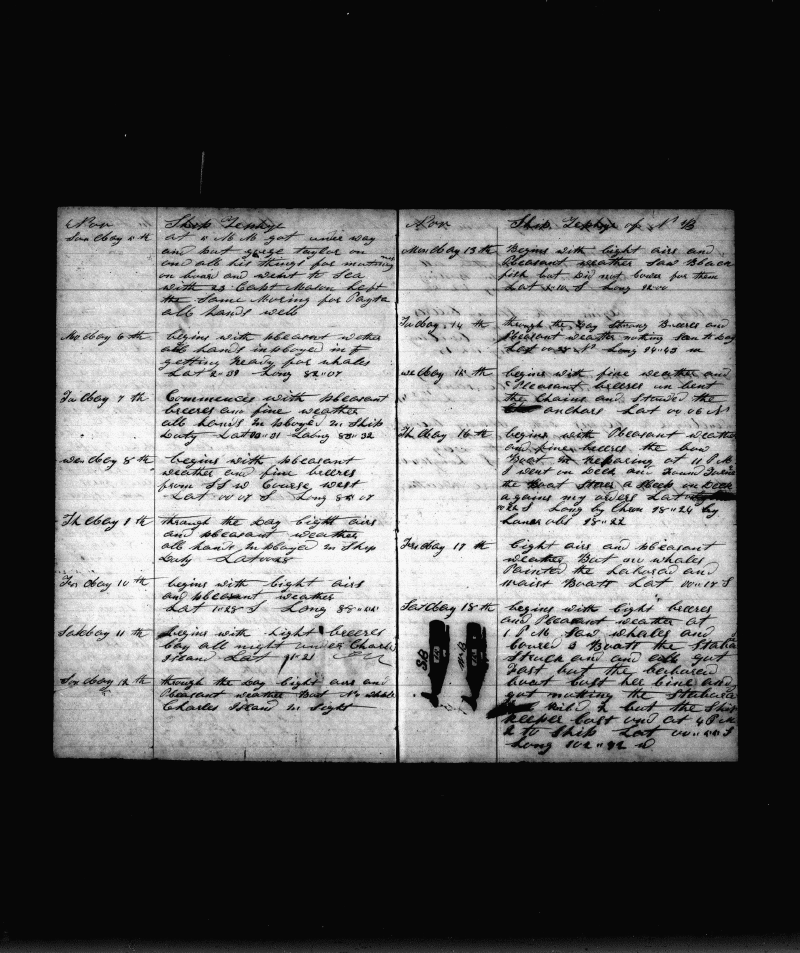 Nov Ship Zephyr
Sun day 5 th at 5 A M got under way
and put george taylor on
and all his things for
on board and went to Sea
with 23 Capt Mason kept
the Same Moring for Payta
all hands well
Mo day 6 th begins with pleasent wether
all hands inployed in
getting Ready for whales
Lat 2"01 Long 82"07
Tu day 7 th Commences with pleasant
breezes and fine weather
all hands in ployed in Ship
Duty Lat Long 32
wen day 8 th begins with pleasant
weather and fine breezes
from S S W Course west
Lat 00"07 S Long 07
Th day 9 th through the Day Light airs
and pleasant weather
all hands In ployed in Ship
Duty Lat
Fri day 10 th begins with Light airs
and pleasant weather
Lat 1"28 S Long
Sat day 11 th begins with Light breezes
Lay all night under Charles
Island Lat 1"21
Sun day 12 th through the Day Light airs and
Pleasant weather But No whales
Charles Island In Sight
Nov Ship Zephyr of N B
Mon day 13 th Begins with Light airs and
Pleasant weather Saw Black
fish but Did not Lower for them
Lat S Long
Tu day 14 th through the Day Strong Breezes and
Pleasant weather nothing Seen to Day
Lat Long
we day 15 th begins with fine weather and
Pleasant breezes un bent
the Chains and Stowed the
anchors Lat 00"06 N
Th day 16 th begins with Pleasant weather
and finer breezes the bow
Boat in Repairing at 11 P M
I went on Deck and Found
the Boat Steer a Sleep on Deck
agains my orders Lat
Long by Chron 98"24 by
Luner obs 98"22
Fri day 17 th Light airs and pleasant
weather But no whales
Painted the Labored and
waist Boats Lat 00"18 S
Sat day 18 th begins with Light breezes
and Pleasant weather at
1 P M Saw whales and
Lowred 3 Boats the
Struck and and all got
Fast but the Labored
boat Lost her Line and
got nothing the
Kild 2 but the Ship
keeper Lost one at 4 P M
2 to Ship Lat S
Long 102"32 W
SB
WB